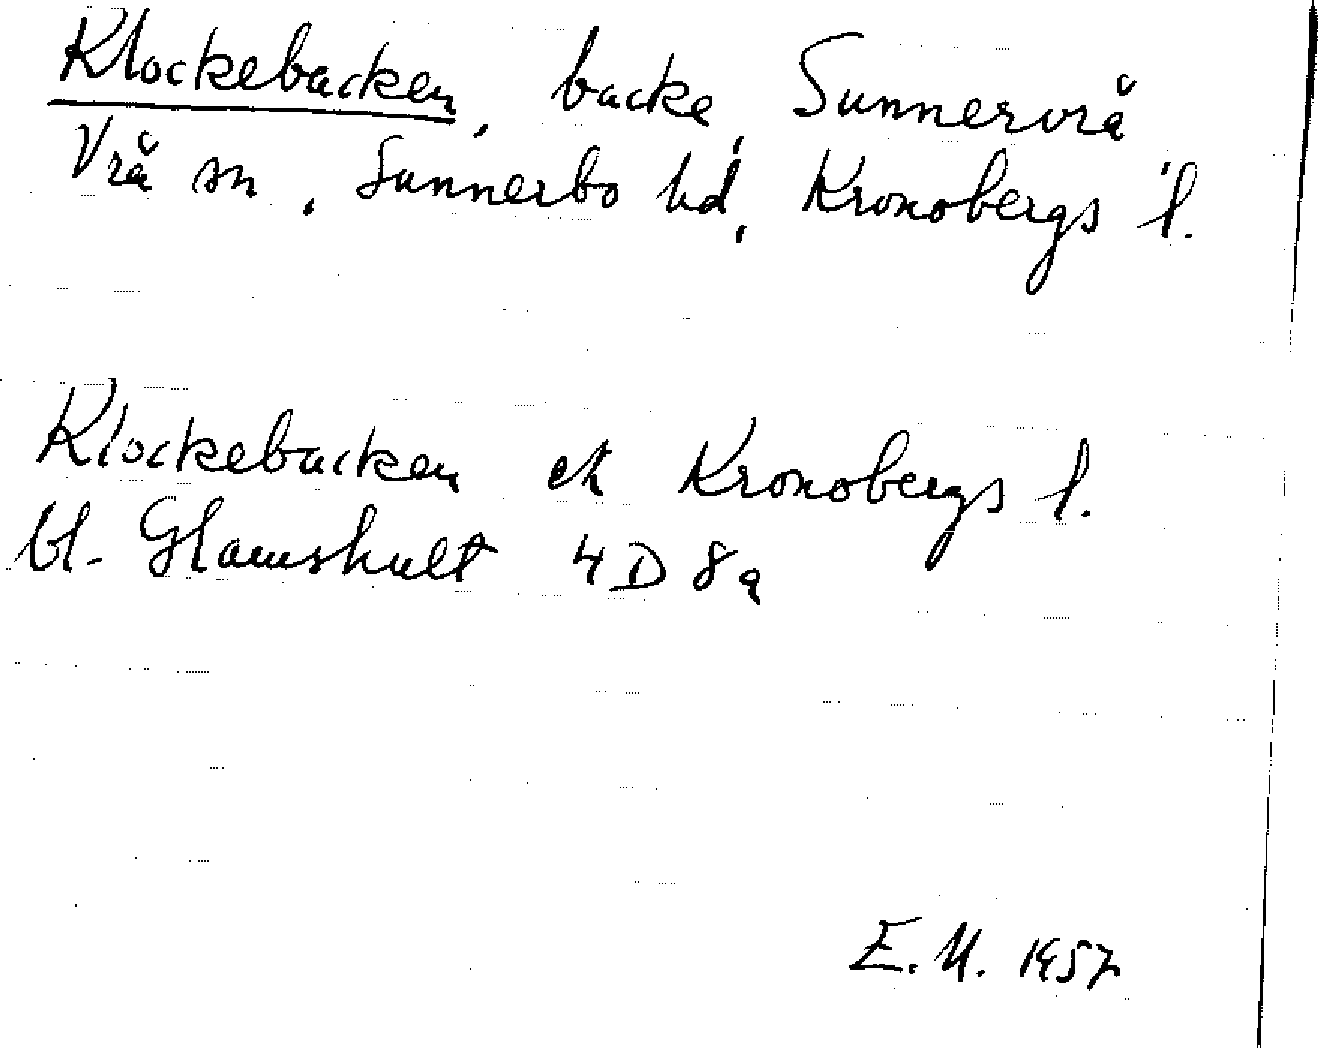 Klockebacken, backe, Sunnervrå
Vrå sn, Sunnerbo hd, Kronobergs l.
Klockebacken ek Kronobergs l.
bl. Glamshult 4D 8a
E.M. 1957